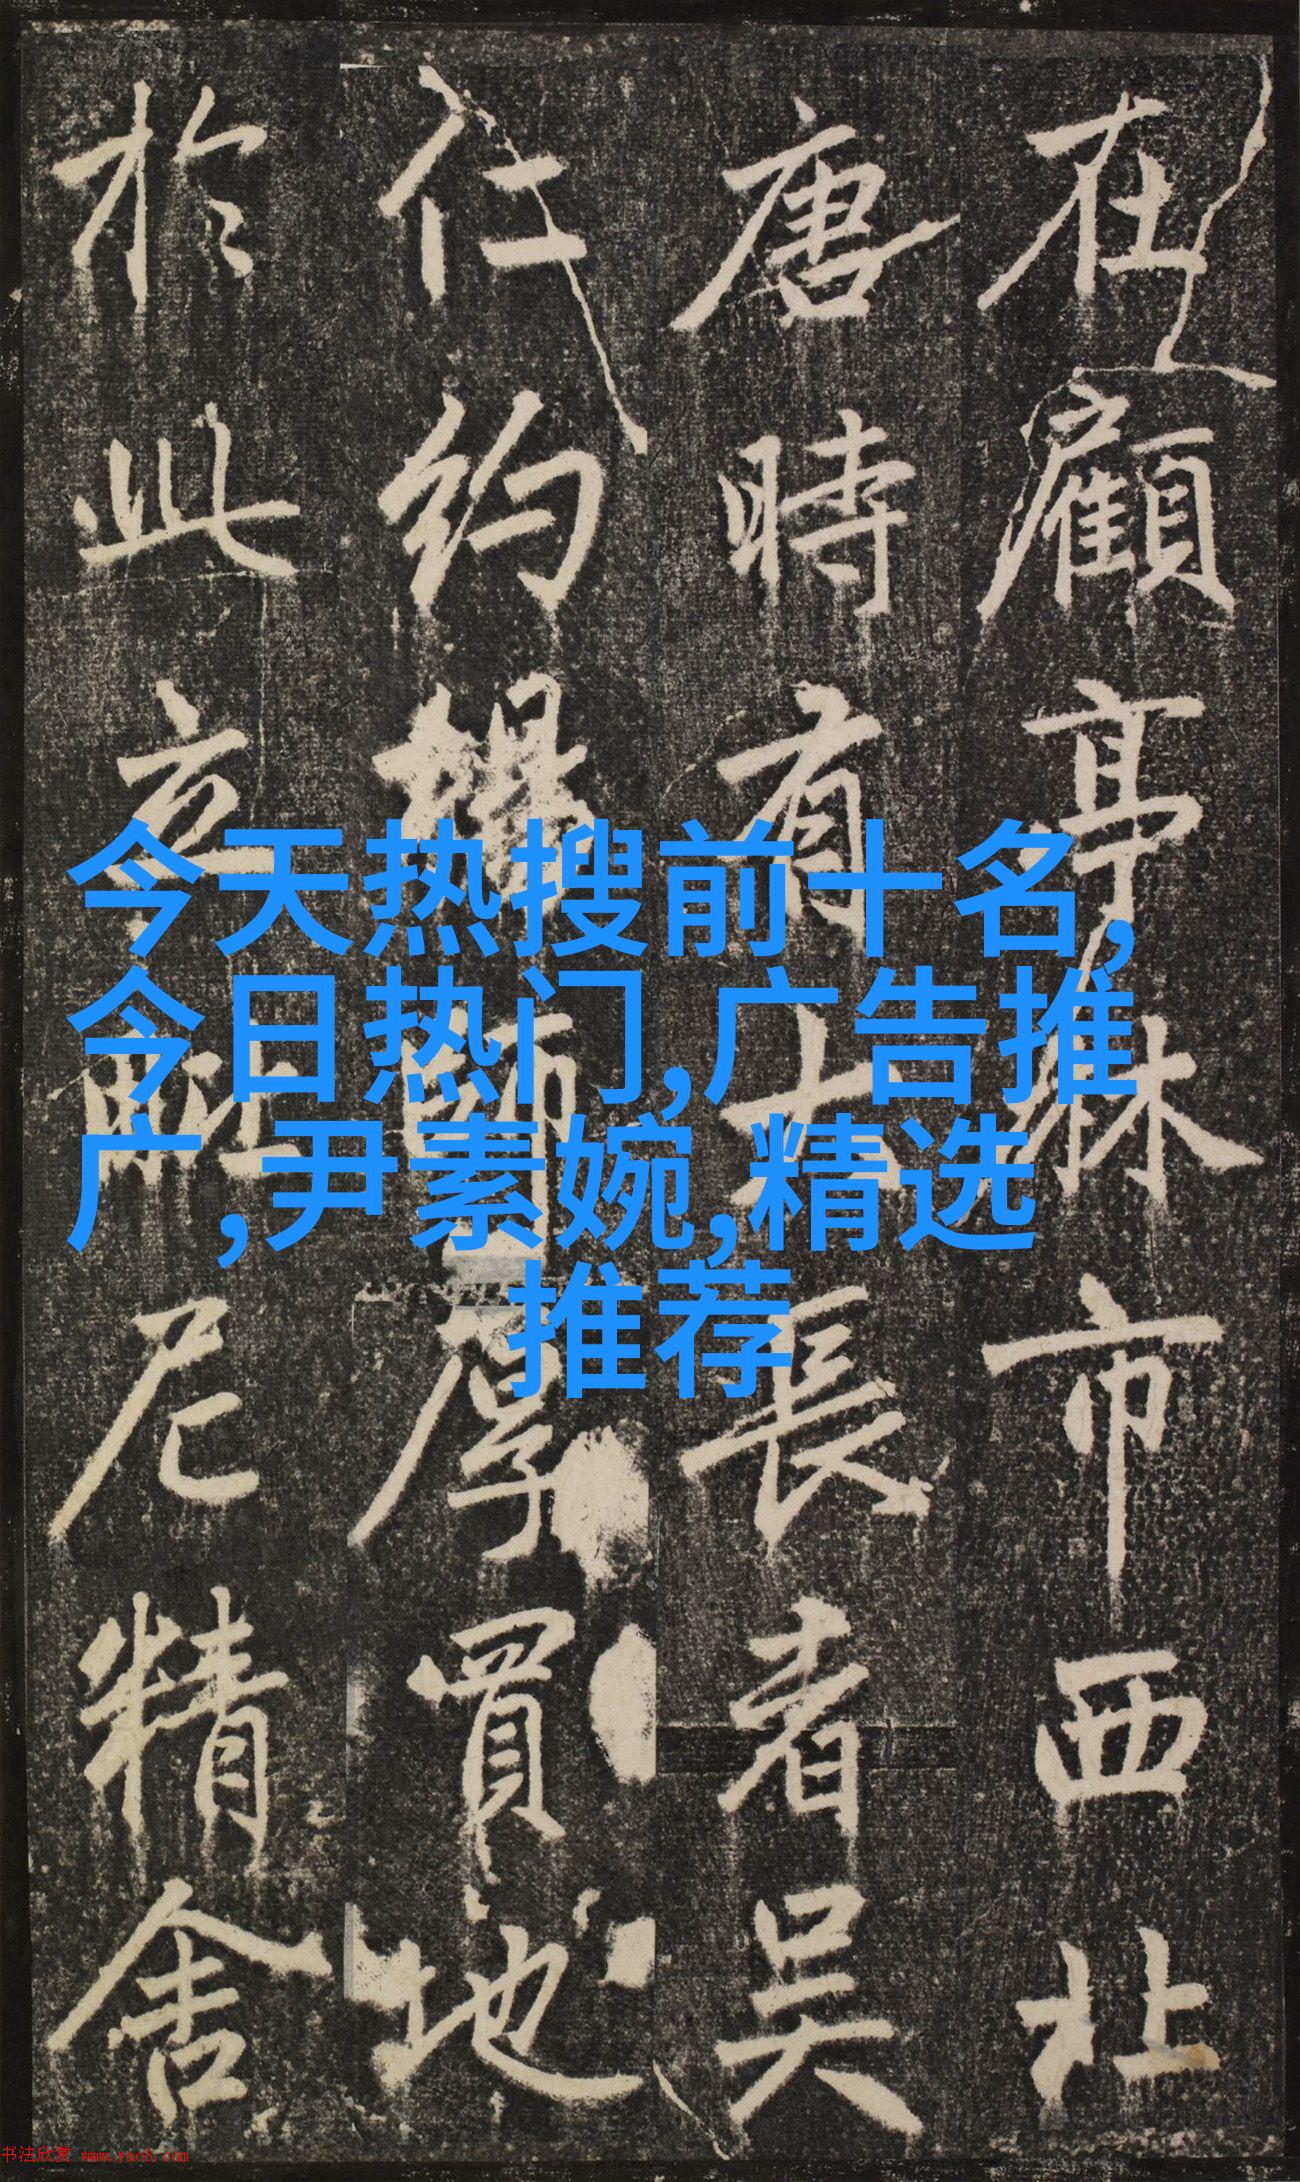 在顧亭林市西北
唐時有大長者吳
仁約捐厚買地
於此立毗尼精舍
今天热搜前十名,
今日热门,广告推
广,尹素婉,精选
推荐
书法欣赏 www.yac8.com